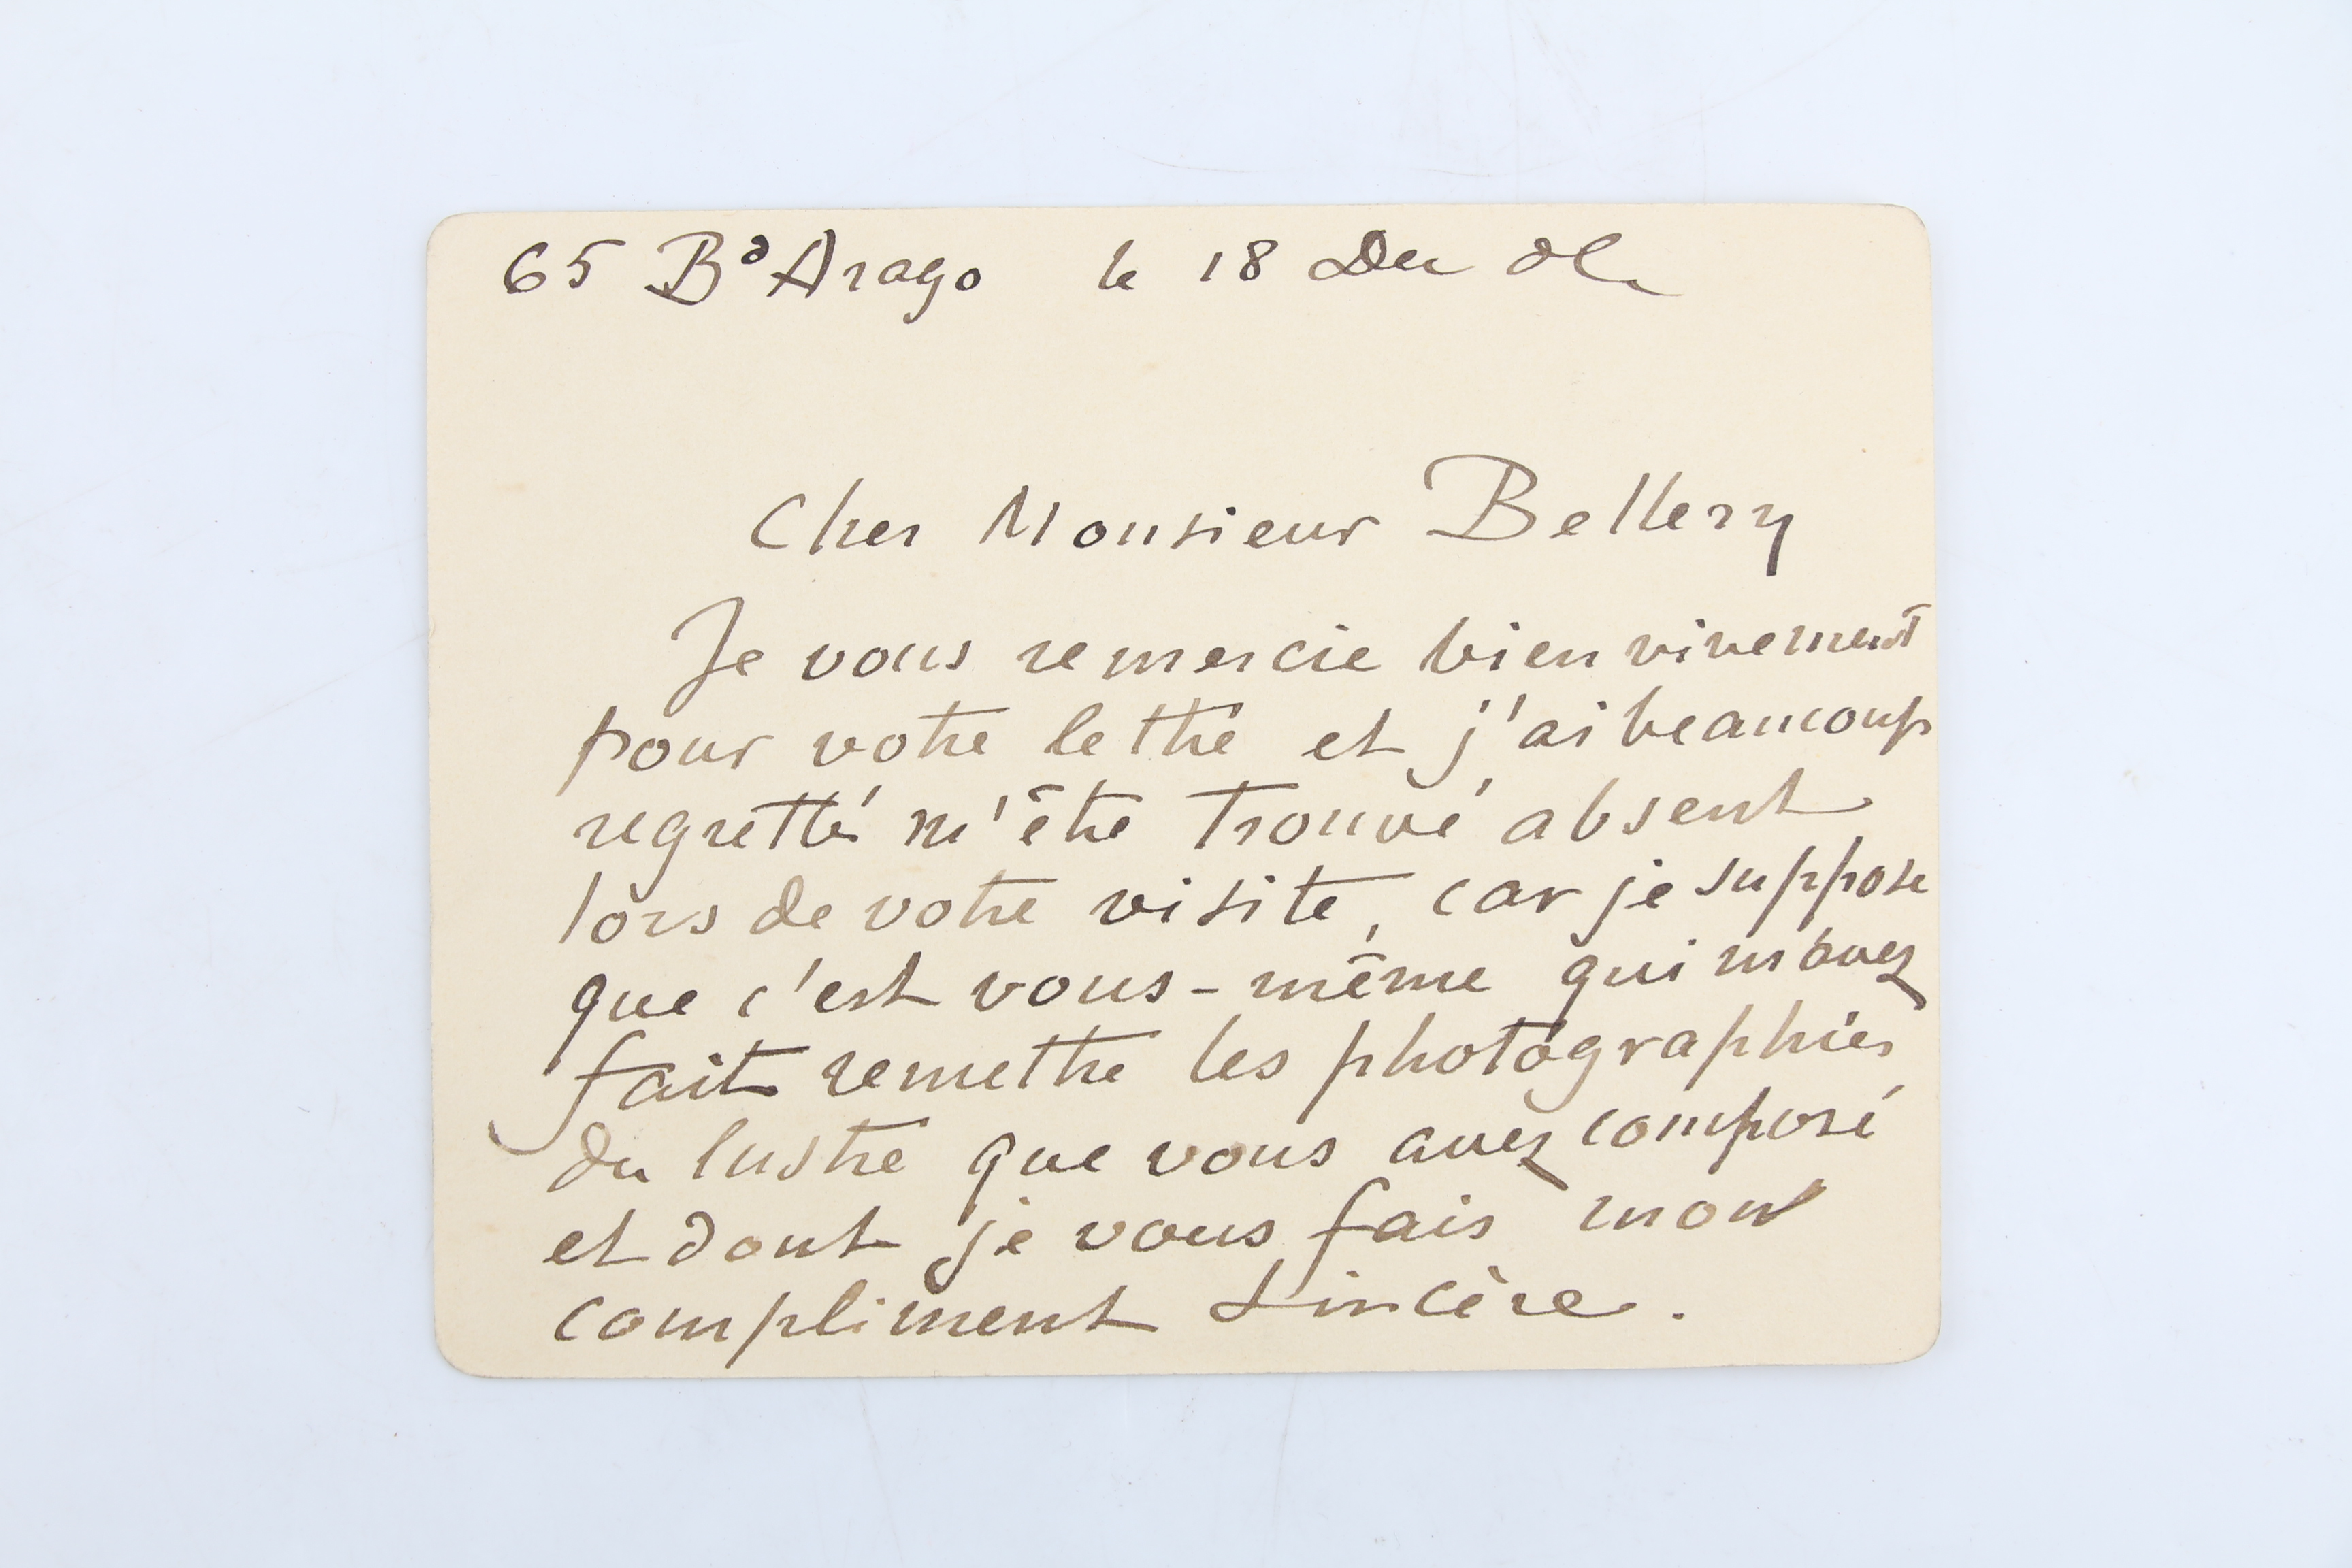 65 Bd Arago le 18 Dec
Cher Monsieur Bellery
Je vous remercie bien vivement
pour votre lettre et j'ai beaucoup
regretté m'être trouvé absent
lors de votre visite, car je suppose
que c'est vous-même qui m'avez
fait remettre les photographies
du lustre que vous avez composé
et dont je vous fais mon
compliment sincère.